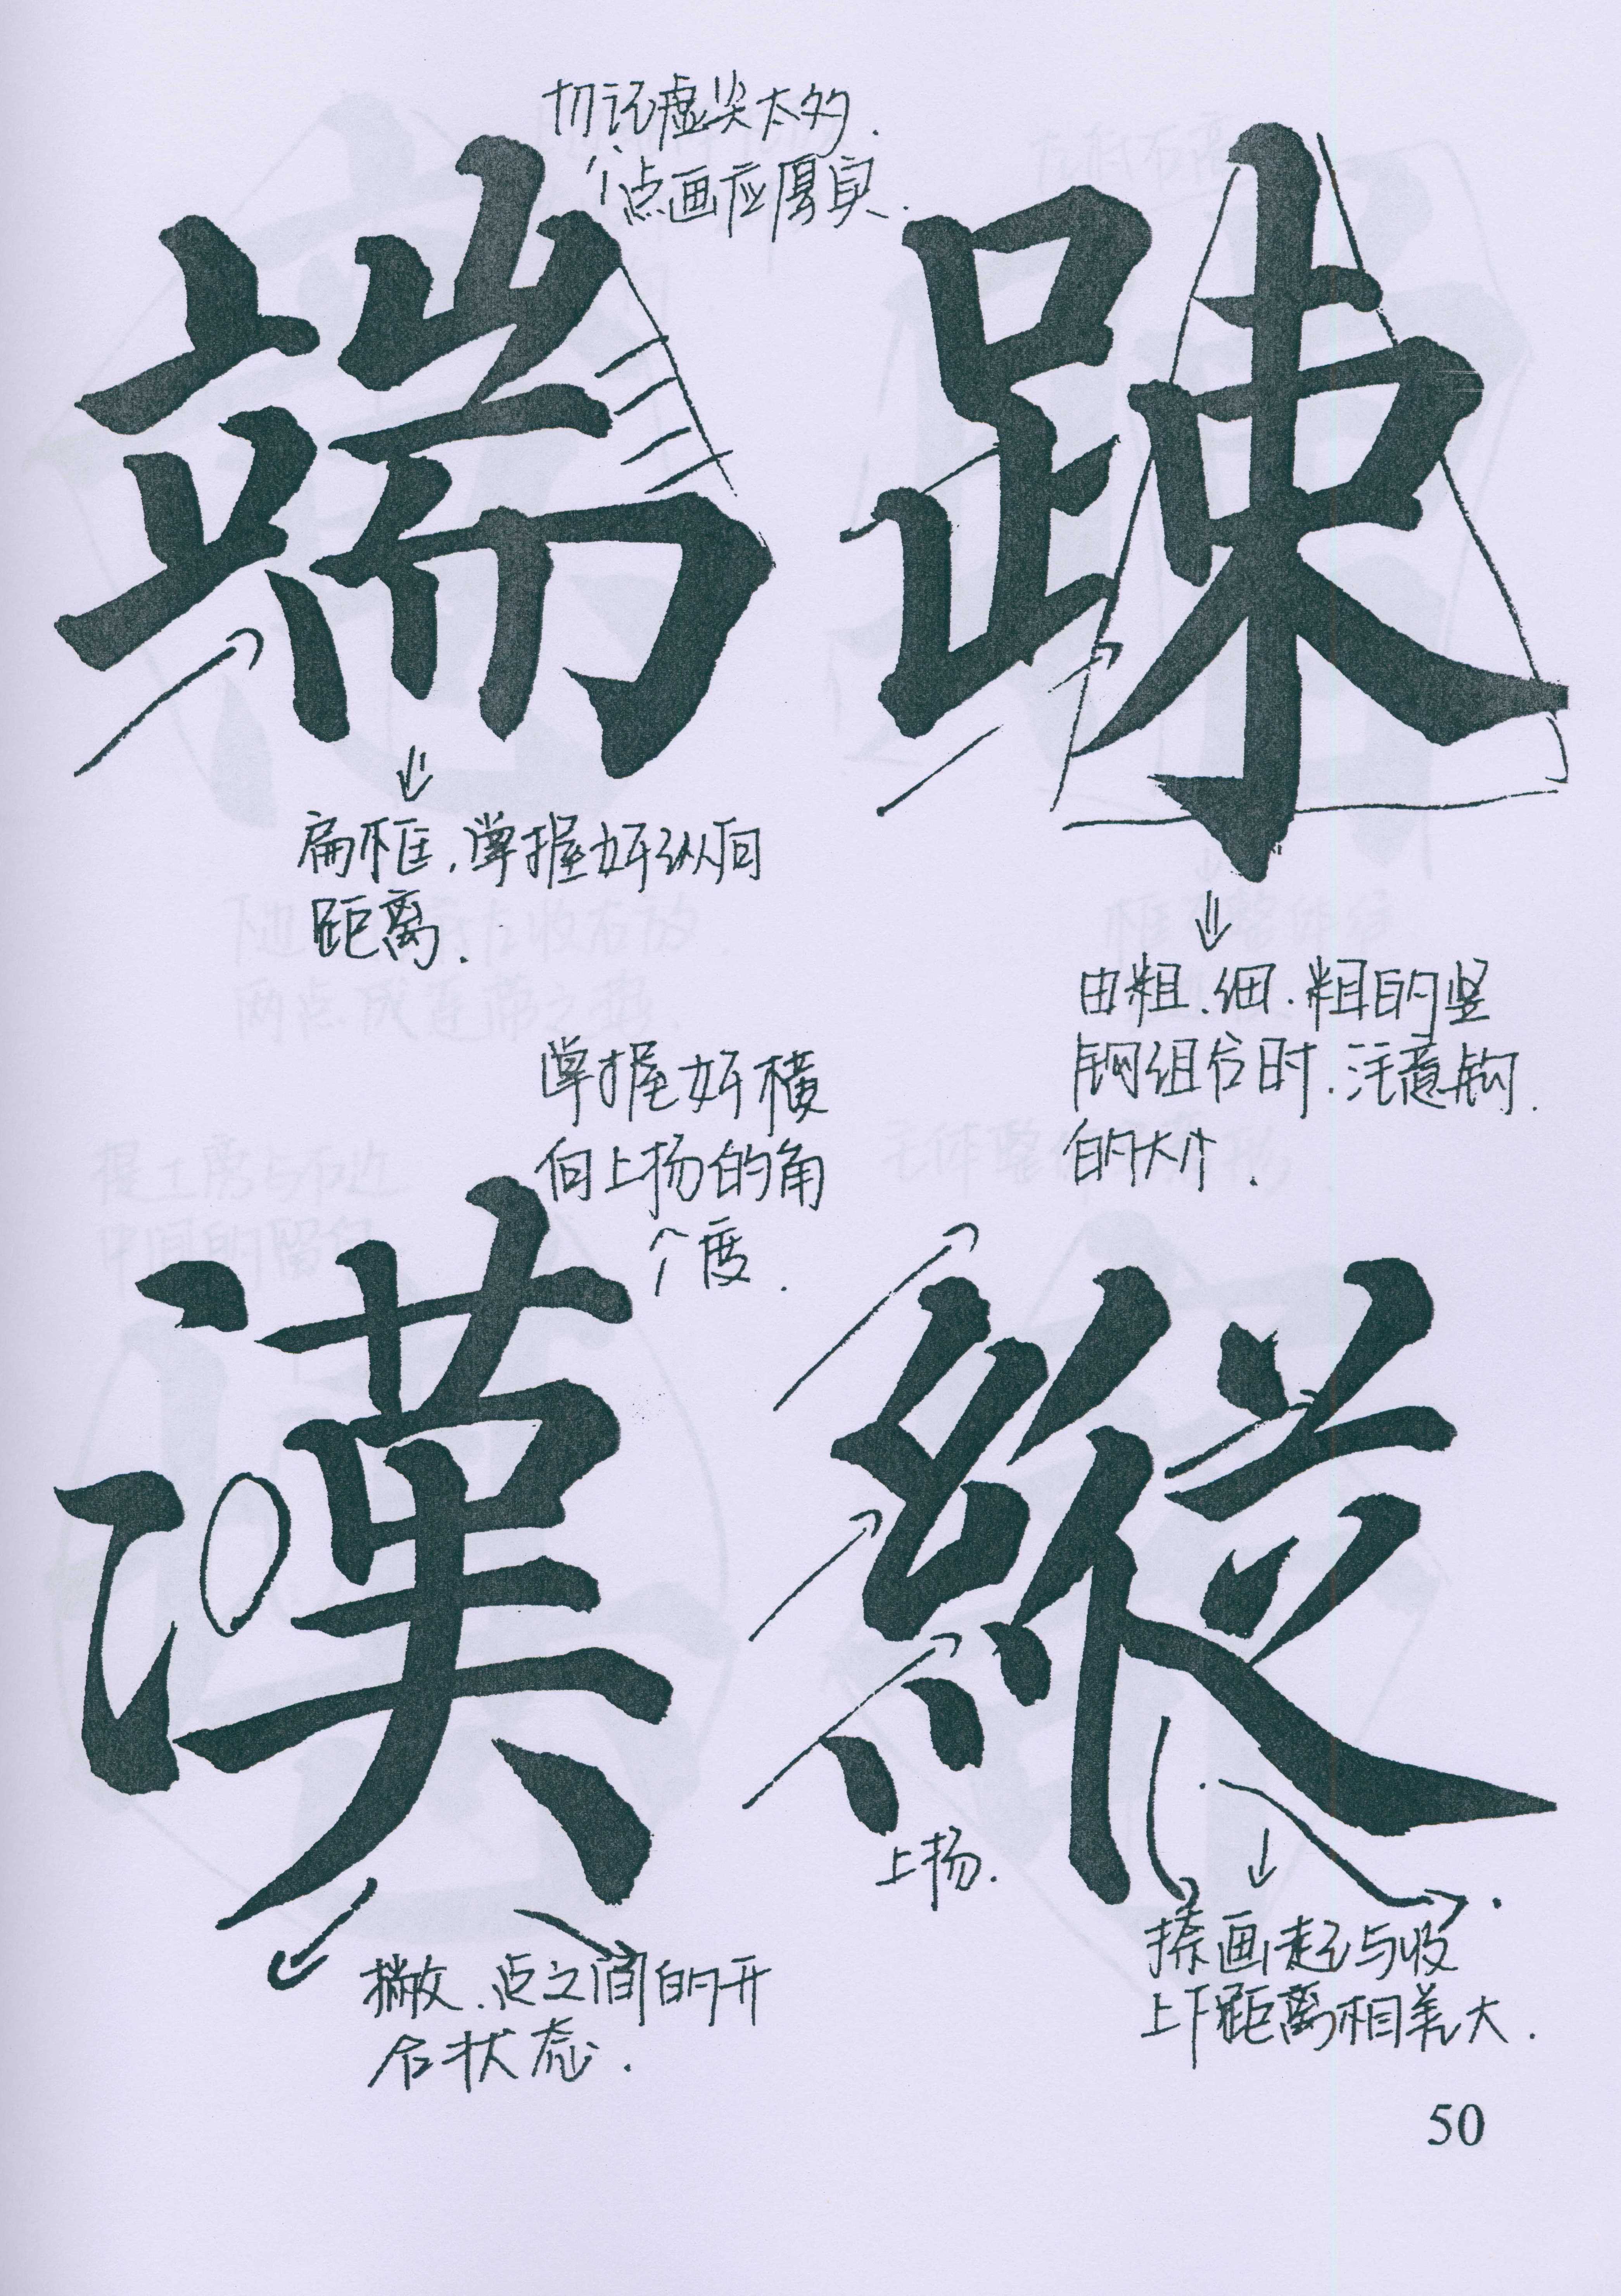 切记虚尖太多.
点画应厚实.
端
踈
扁框.掌握好纵向
距离.
由粗.细.粗的竖
钩组合时.注意钩.
的大小.
掌握好横
向上扬的角
度.
漢
縱
上扬.
撇.点之间的开
合状态.
捺画起与收
上下距离相差大.
50